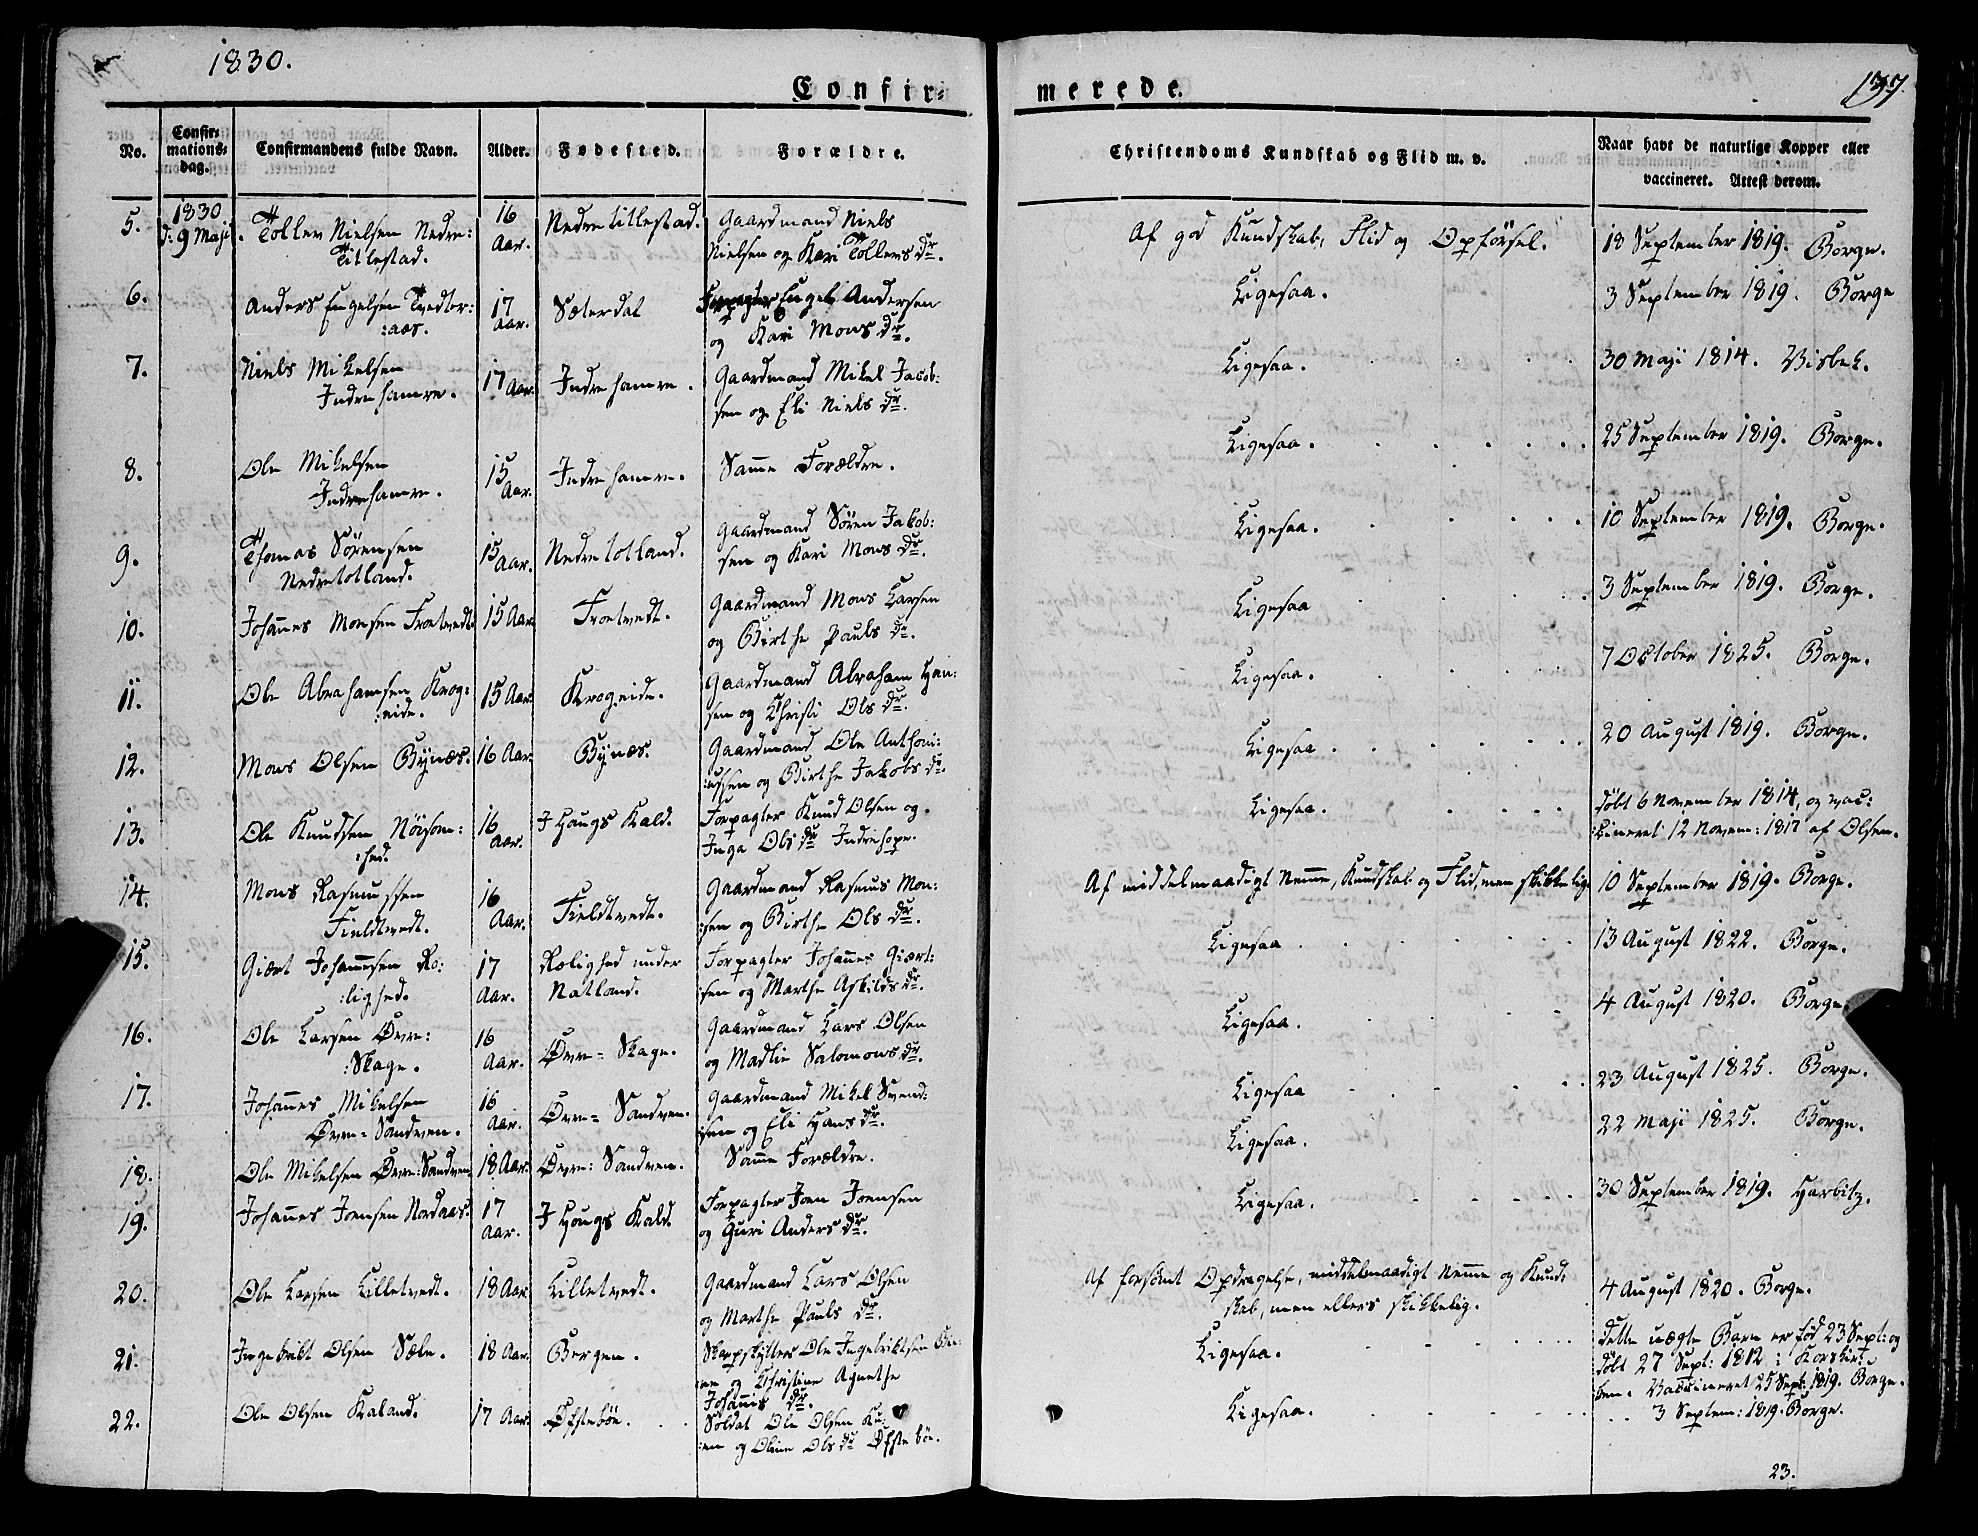 1830.
Confir-
merede.
137
No.
Confir-
mations-
dag.
Confirmandens fulde Navn.
Alder.
Fødested.
Forældre.
Christendoms Kundskab og Flid m. v.
Naar havt de naturlige Kopper eller
vaccineret. Attest derom.
5.
1830
d: 9 Maji.
Tollev Nielsen Nedre:
Titlestad.
16
Aar.
Nedretitlestad.
Gaardmand Niels
Nielsen og Kari Tollevs Dr.
Af god Kundskab, Flid og Opförsel.
18 September 1819. Borge.
6.
Anders Engelsen Tvedtor:
:aas.
17
Aar.
Sæterdal
Forpagter Engel Andersen
og Kari Mons Dr.
Ligesaa.
3 September 1819. Borge
7.
Niels Mikelsen
Indrehamre.
17 Aar.
Indrehamre.
Gaardmand Mikel Jacob:
sen og Eli Niels Dr.
Ligesaa.
30 Maji 1814. Visbek.
8.
Ole Mikelsen
Indrehamre.
15
Aar.
Indrehamre.
Samme Forældre.
Ligesaa.
25 September 1819. Borge.
9.
Thomas Sörensen
Nedretotland.
15 Aar.
Nedretotland.
Gaardmand Sören Jakob:
sen og Kari Mons Dr.
Ligesaa.
10 September 1819. Borge.
10.
Johannes Monsen Frotvedt
15 Aar
Frotvedt.
Gaardmand Mons Larsen
og Birthe Pauls Dr.
Ligesaa
3 September 1819. Borge.
11.
Ole Abrahamsen Krog:
:eide.
15 Aar
Krogeide.
Gaardmand Abraham Han:
sen og Christi Ols Dr.
Ligesaa.
7 October 1825. Borge.
12.
Mons Olsen Bynæs.
16 Aar.
Bynæs.
Gaardmand Ole Anthoni:
:ussen og Birthe Jakobs Dr.
Ligesaa.
20 August 1819. Borge.
13.
Ole Knudsen Nöisom:
:hed.
16
Aar.
I Hougs Kald.
Forpagter Knud Olsen og
Inga Ols Dr Indrehope.
Ligesaa.
döbt 6 November 1814, og vac:
:cineret 12 Novem: 1817 af Olsen.
14.
Mons Rasmussen
Fieldtvedt.
16
Aar.
Fieldtvedt.
Gaardmand Rasmus Mon:
:sen og Birthe Ols Dr.
Af middelmaadigt Nemme, Kundskab og Flid, men skikkelig.
10 September 1819. Borge.
15.
Giært Johannesen Ro:
:lighed.
17
Aar.
Rolighed under
Natland.
Forpagter Johannes Giært:
:sen og Marthe Askilds Dr.
Ligesaa
13 August 1822. Borge.
16.
Ole Larsen Övre:
:Skage.
16
Aar.
Övre= Skage.
Gaardmand Lars Olsen
og Madlie Salomons Dr.
Ligesaa.
4 August 1820. Borge.
17.
Johannes Mikelsen
Övre= Sandven.
16
Aar.
Övre= Sandven.
Gaardmand Mikel Svend:
:sen og Eli Hans Dr.
Ligesaa
23 August 1825. Borge.
18.
Ole Mikelsen Övre: Sandven
18 Aar.
Övre: Sandven.
Samme Forældre.
Ligesaa.
22 Maji 1825. Borge.
19.
Johannes Joensen Nordaas.
17
Aar.
I Hougs Kald.
Forpagter Joen Joensen
og Guri Anders Dr.
Ligesaa.
30 September 1819. Harbitz.
20.
Ole Larsen Lilletvedt.
18 Aar.
Lilletvedt.
Gaardmand Lars Olsen
og Marthe Pauls Dr.
Af forsömt Opdragelse, middelmaadigt Nemme og Kund:
skab, men ellers skikkelig.
4 August 1820. Borge.
21.
Ingebrikt Olsen Sæle.
18 Aar.
Bergen.
Skarpskytter Ole Ingebriktsen
og Christine Agnethe
Johannis Dr.
Ligesaa.
dette uægte Barn er föd 23 Sept: og
döbt 27 Sept: 1812 i Korskir:
ken. Vaccineret 25 Sept: 1819. Borge.
22.
Ole Olsen Kaland.
17 Aar.
Öfstebøe.
Soldat Ole Olsen
og Oline Ols Dr Öfstebøe.
Ligesaa.
3 Septem: 1819. Borge.
23.